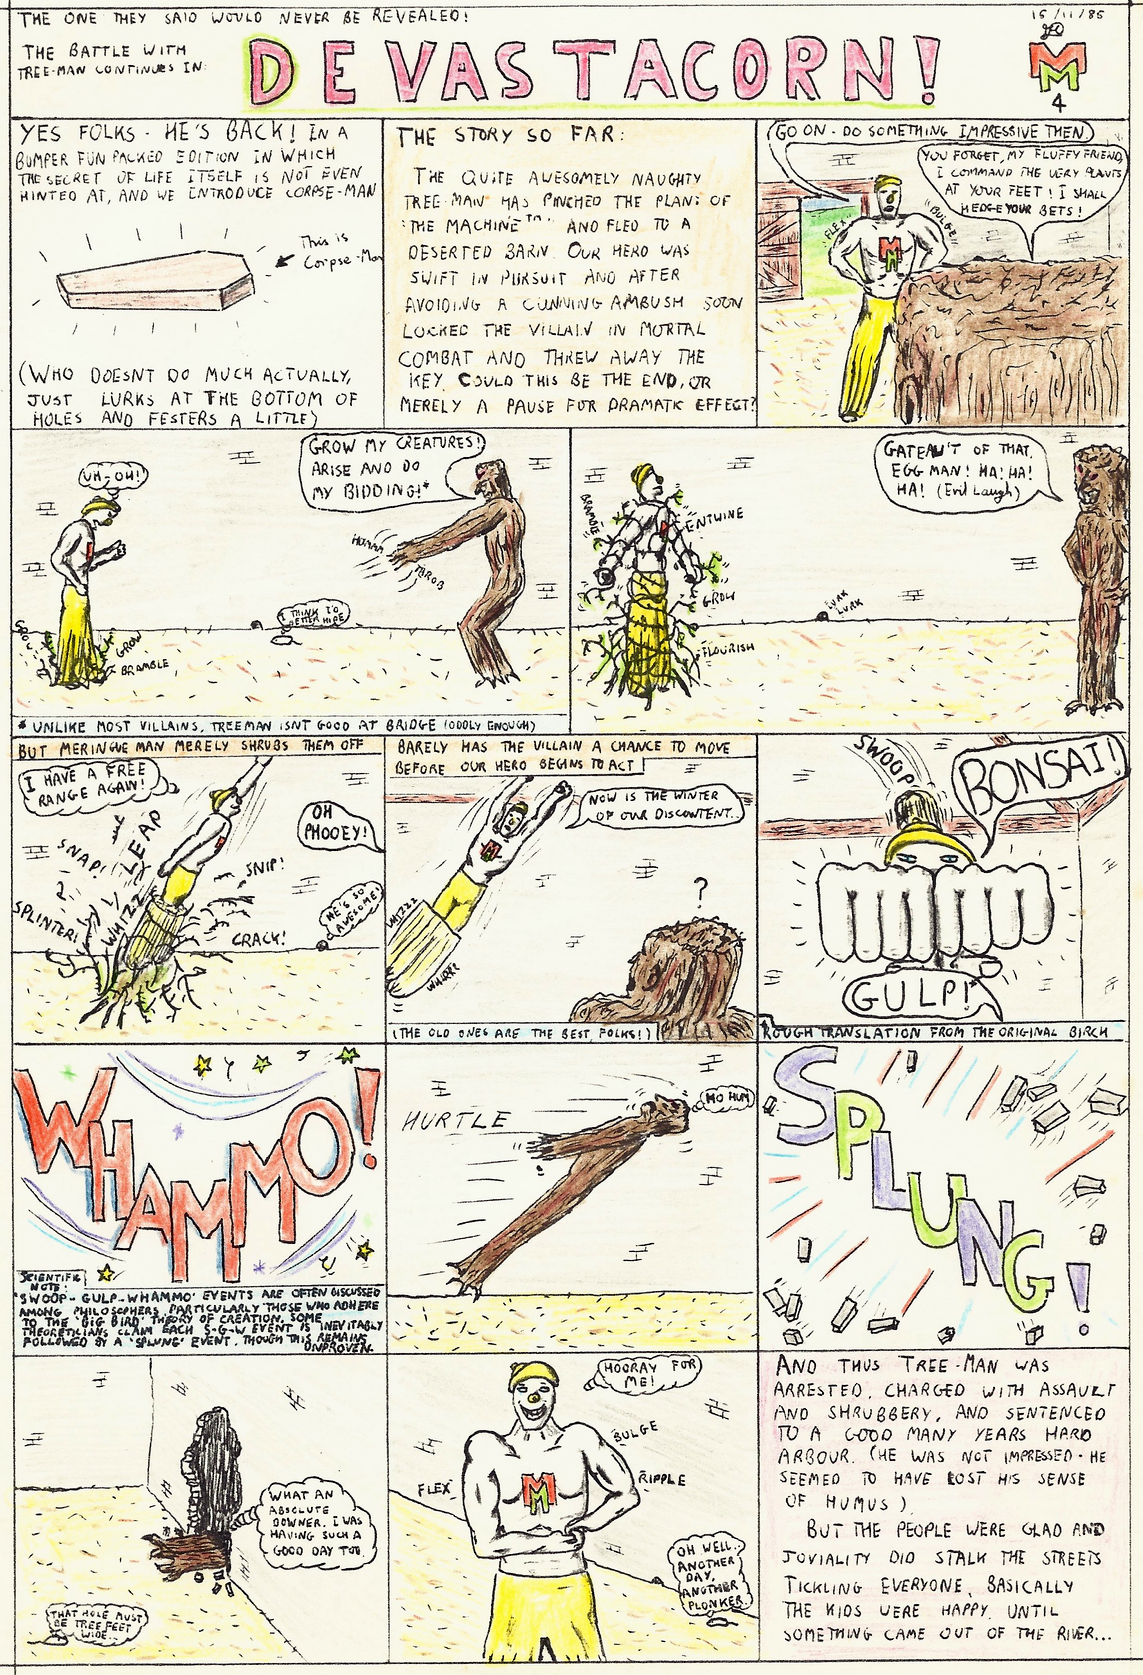 THE ONE THEY SAID WOULD NEVER BE REVEALED!
THE BATTLE WITH
TREE-MAN CONTINUES IN:
DEVASTACORN!
15/11/85
MM
4
YES FOLKS - HE'S BACK! IN A
BUMPER FUN PACKED EDITION IN WHICH
THE SECRET OF LIFE ITSELF IS NOT EVEN
HINTED AT, AND WE INTRODUCE CORPSE-MAN
This is
Corpse-Man
(WHO DOESNT DO MUCH ACTUALLY,
JUST LURKS AT THE BOTTOM OF
HOLES AND FESTERS A LITTLE)
THE STORY SO FAR:
THE QUITE AWESOMELY NAUGHTY
TREE-MAN HAS PINCHED THE PLANS OF
'THE MACHINE™' AND FLED TO A
DESERTED BARN. OUR HERO WAS
SWIFT IN PURSUIT AND AFTER
AVOIDING A CUNNING AMBUSH SOON
LOCKED THE VILLAIN IN MORTAL
COMBAT AND THREW AWAY THE
KEY. COULD THIS BE THE END, OR
MERELY A PAUSE FOR DRAMATIC EFFECT?
GO ON - DO SOMETHING IMPRESSIVE THEN.
YOU FORGET, MY FLUFFY FRIEND,
I COMMAND THE VERY PLANTS
AT YOUR FEET! I SHALL
HEDGE YOUR BETS!
FLEX
BULGE
MM
UH-OH!
GROW MY CREATURES!
ARISE AND DO
MY BIDDING!*
HUMM
THROB
I THINK I'D
BETTER HIDE
GROW
GROW
BRAMBLE
* UNLIKE MOST VILLAINS, TREEMAN ISNT GOOD AT BRIDGE (ODDLY ENOUGH)
GATEAU'T OF THAT,
EGG MAN! HA! HA!
HA! (Evil Laugh)
BRAMBLE
ENTWINE
GROW
FLOURISH
LURK
LURK
BUT MERINGUE MAN MERELY SHRUBS THEM OFF
I HAVE A FREE
RANGE AGAIN!
OH
PHOOEY!
SNAP!
LEAP
SNIP!
SPLINTER!
WHIZZ
CRACK!
HE'S SO
AWESOME!
BARELY HAS THE VILLAIN A CHANCE TO MOVE
BEFORE OUR HERO BEGINS TO ACT
NOW IS THE WINTER
OF OUR DISCONTENT..
MM
?
WHIZZZ
WHIRRR
(THE OLD ONES ARE THE BEST FOLKS!)
SWOOP
BONSAI!
GULP!*
*ROUGH TRANSLATION FROM THE ORIGINAL BIRCH
WHAMMO!
SCIENTIFIC
NOTE:
'SWOOP-GULP-WHAMMO' EVENTS ARE OFTEN DISCUSSED
AMONG PHILOSOPHERS, PARTICULARLY THOSE WHO ADHERE
TO THE 'BIG BIRD' THEORY OF CREATION. SOME
THEORETICIANS CLAIM EACH S-G-W EVENT IS INEVITABLY
FOLLOWED BY A 'SPLUNG' EVENT, THOUGH THIS REMAINS
UNPROVEN.
HURTLE
HO HUM
SPLUNG!
WHAT AN
ABSOLUTE
DOWNER. I WAS
HAVING SUCH A
GOOD DAY TOO.
THAT HOLE MUST
BE TREE FEET
WIDE..
HOORAY FOR
ME!
BULGE
FLEX
RIPPLE
MM
OH WELL.
ANOTHER
DAY,
ANOTHER
PLONKER
AND THUS TREE-MAN WAS
ARRESTED, CHARGED WITH ASSAULT
AND SHRUBBERY, AND SENTENCED
TO A GOOD MANY YEARS HARD
ARBOUR. (HE WAS NOT IMPRESSED - HE
SEEMED TO HAVE LOST HIS SENSE
OF HUMUS)
BUT THE PEOPLE WERE GLAD AND
JOVIALITY DID STALK THE STREETS
TICKLING EVERYONE. BASICALLY
THE KIDS WERE HAPPY. UNTIL
SOMETHING CAME OUT OF THE RIVER...